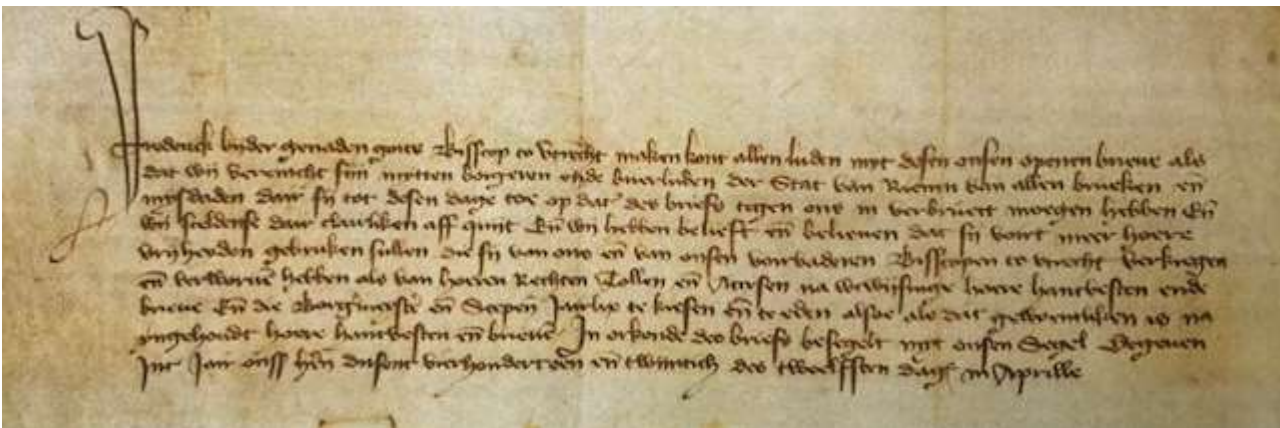 Frederick bijder genaden goits Bisscop to Utrecht maken kont allen luden myt desen onsen openen brieue als
dat wij verenicht sijn mytten borgeren ende buerluden der Stat van Rienen van allen brueken eñ
mysdaden dair sij tot desen dage toe op dat des briefs tigen ons in verbruert moegen hebben Eñ
wij scheldense dair claerliken aff quijt Eñ wij hebben belieft eñ belieuen dat sij voirt meer hoere
vrijheyden gebruken sullen die sij van ons eñ van onsen voirvaderen Bisscopen to utrecht verkregen
eñ verworuē hebben als van hoeren Rechten Tollen eñ na wtwijsinge hoere hantvesten ende
brieue Eñ die Borgmeistē eñ Scepen Jairlix te kiesen Eñ te eden alsoe als dat gewoentliken is na
ynhehoudt hoere hantvesten eñ brieuē In orkonde des briefs besegelt myt onsen Segel Gegeuen
Int Jair onss hēn dusent vierhondert een eñ twintich des twelefften dages in Aprille